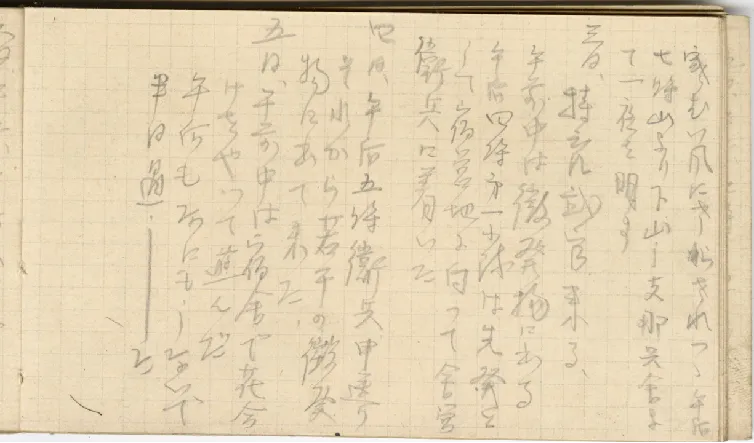 寒む い風にさらされつゝ午后
七時山より下山し支那兵舎に
て一夜を明す
三日、侍従武官来る、
午前中は徴発物に出る
午后四時第一小隊は先発と
して宿営地に向って舎営
衛兵に着いた
四日、午后五時衛兵申送り
それから若干の徴発
物に出て来た、
五日、午前中は宿舎で花合
けをやって遊んだ
午后も何にもしないで
半日過――た